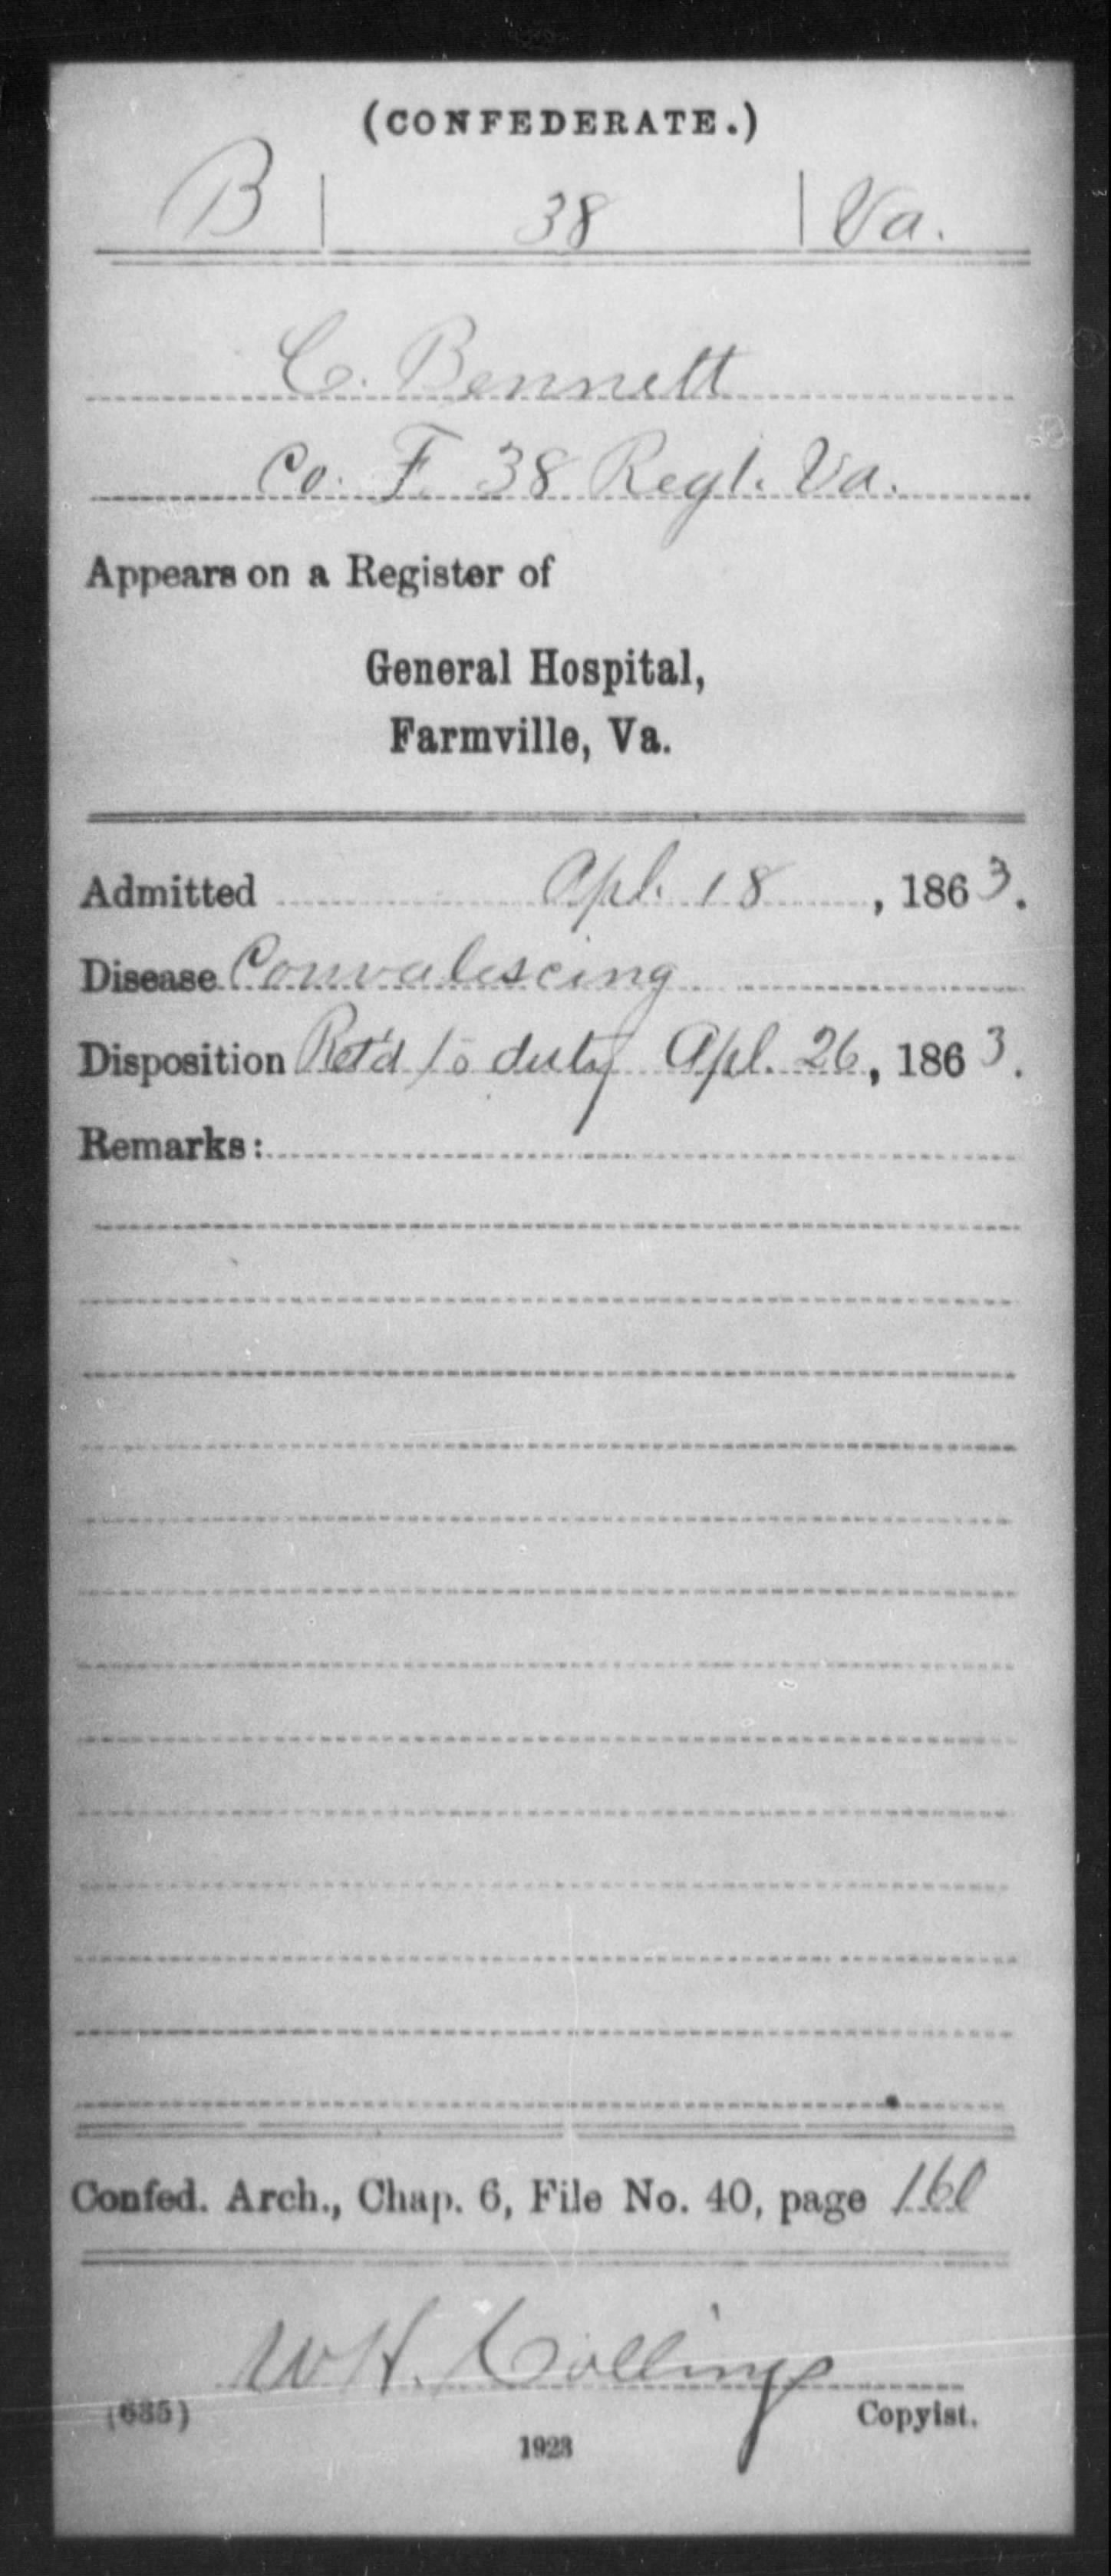 (CONFEDERATE.)
B | 38 | Va.
C. Bennett
Co. F. 38 Regt. Va.
Appears on a Register of
General Hospital,
Farmville, Va.
Admitted Apl. 18, 1863.
Disease Convalescing
Disposition Ret'd to duty Apl. 26, 1863.
Remarks:
Confed. Arch., Chap. 6, File No. 40, page 161
W H. Collings
(635) Copyist.
1923